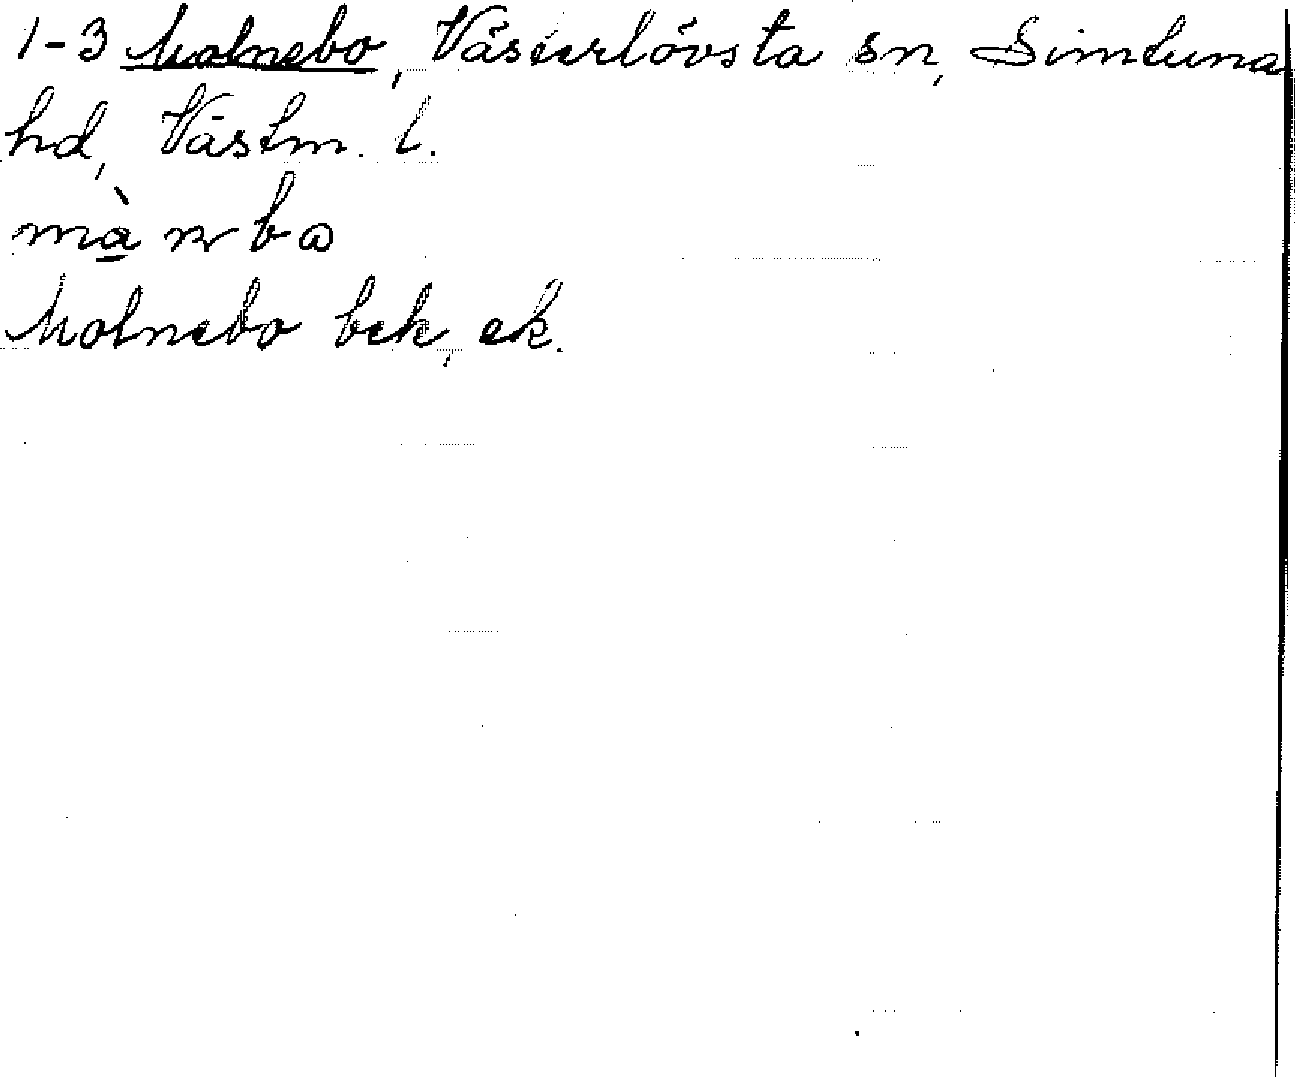 1-3 Molnebo, Västerlövsta sn, Simtuna
hd, Västm. l.
Molnebo bek, ek.